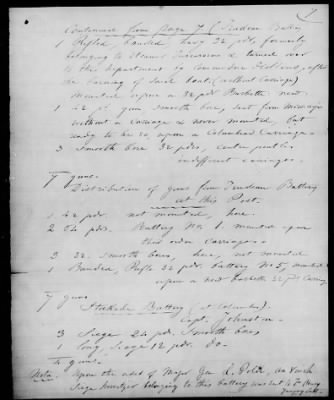 Continued from page 7 of Trudeau Battery
1 Rifled, banded navy 32 pdr, formerly
belonging to Steamer and turned over
to the department by Commodore Hollins, after
the burning of said boat. (without Carriage)
Mounted upon a 32 pdr Barbette new.
1 42 pdr. gun Smooth bore, sent from
without a carriage & never mounted, but
ready to be so, upon a Columbiad Carriage.
3 Smooth bore 32 pdrs,
indifferent carriages.
7 guns.
Distribution of guns from Trudeau Battery
at this Post.
1 42 pdr. not mounted, here.
2 64 pdrs. Battery No 1. mounted upon
their own carriages.
3 32. Smooth bores, here, not mounted
1 Banded, Rifle 32 pdr. battery No 5, mounted
upon a new barbette 32 pdr Carriage
7 guns
Stockade Battery (at Columbus).
Capt. Johnston.
3 Siege 24 pdr. Smooth bores
1 long, Siege 12 pdr. do.
4 guns.
Note. Upon the order of Major Gen L. Polk, an 8 inch
Siege howitzer belonging to this battery was sent to Ft. Henry